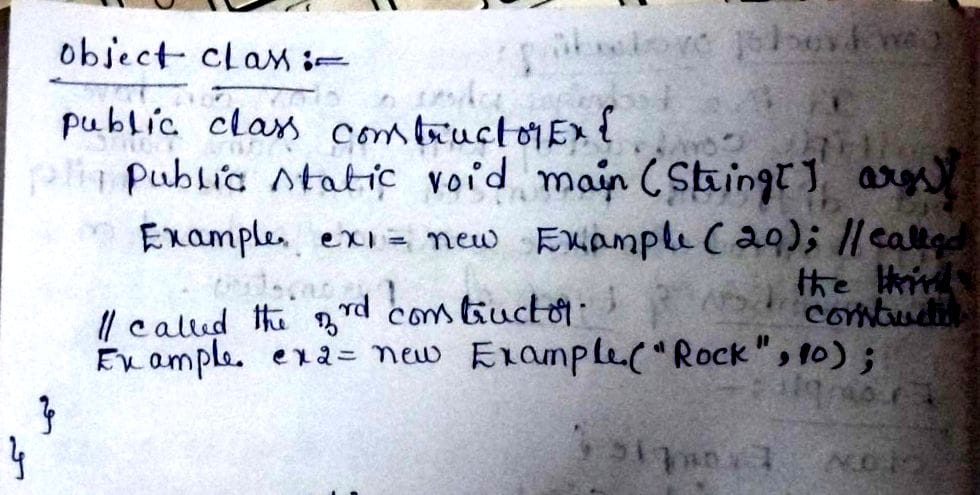 Object class :-
public class constructorEx {
Public static void main (String[] args){
Example ex1 = new Example (20); // called
the third
// called the 3rd constructor. constructor
Example ex2 = new Example("Rock", 10);
}
}